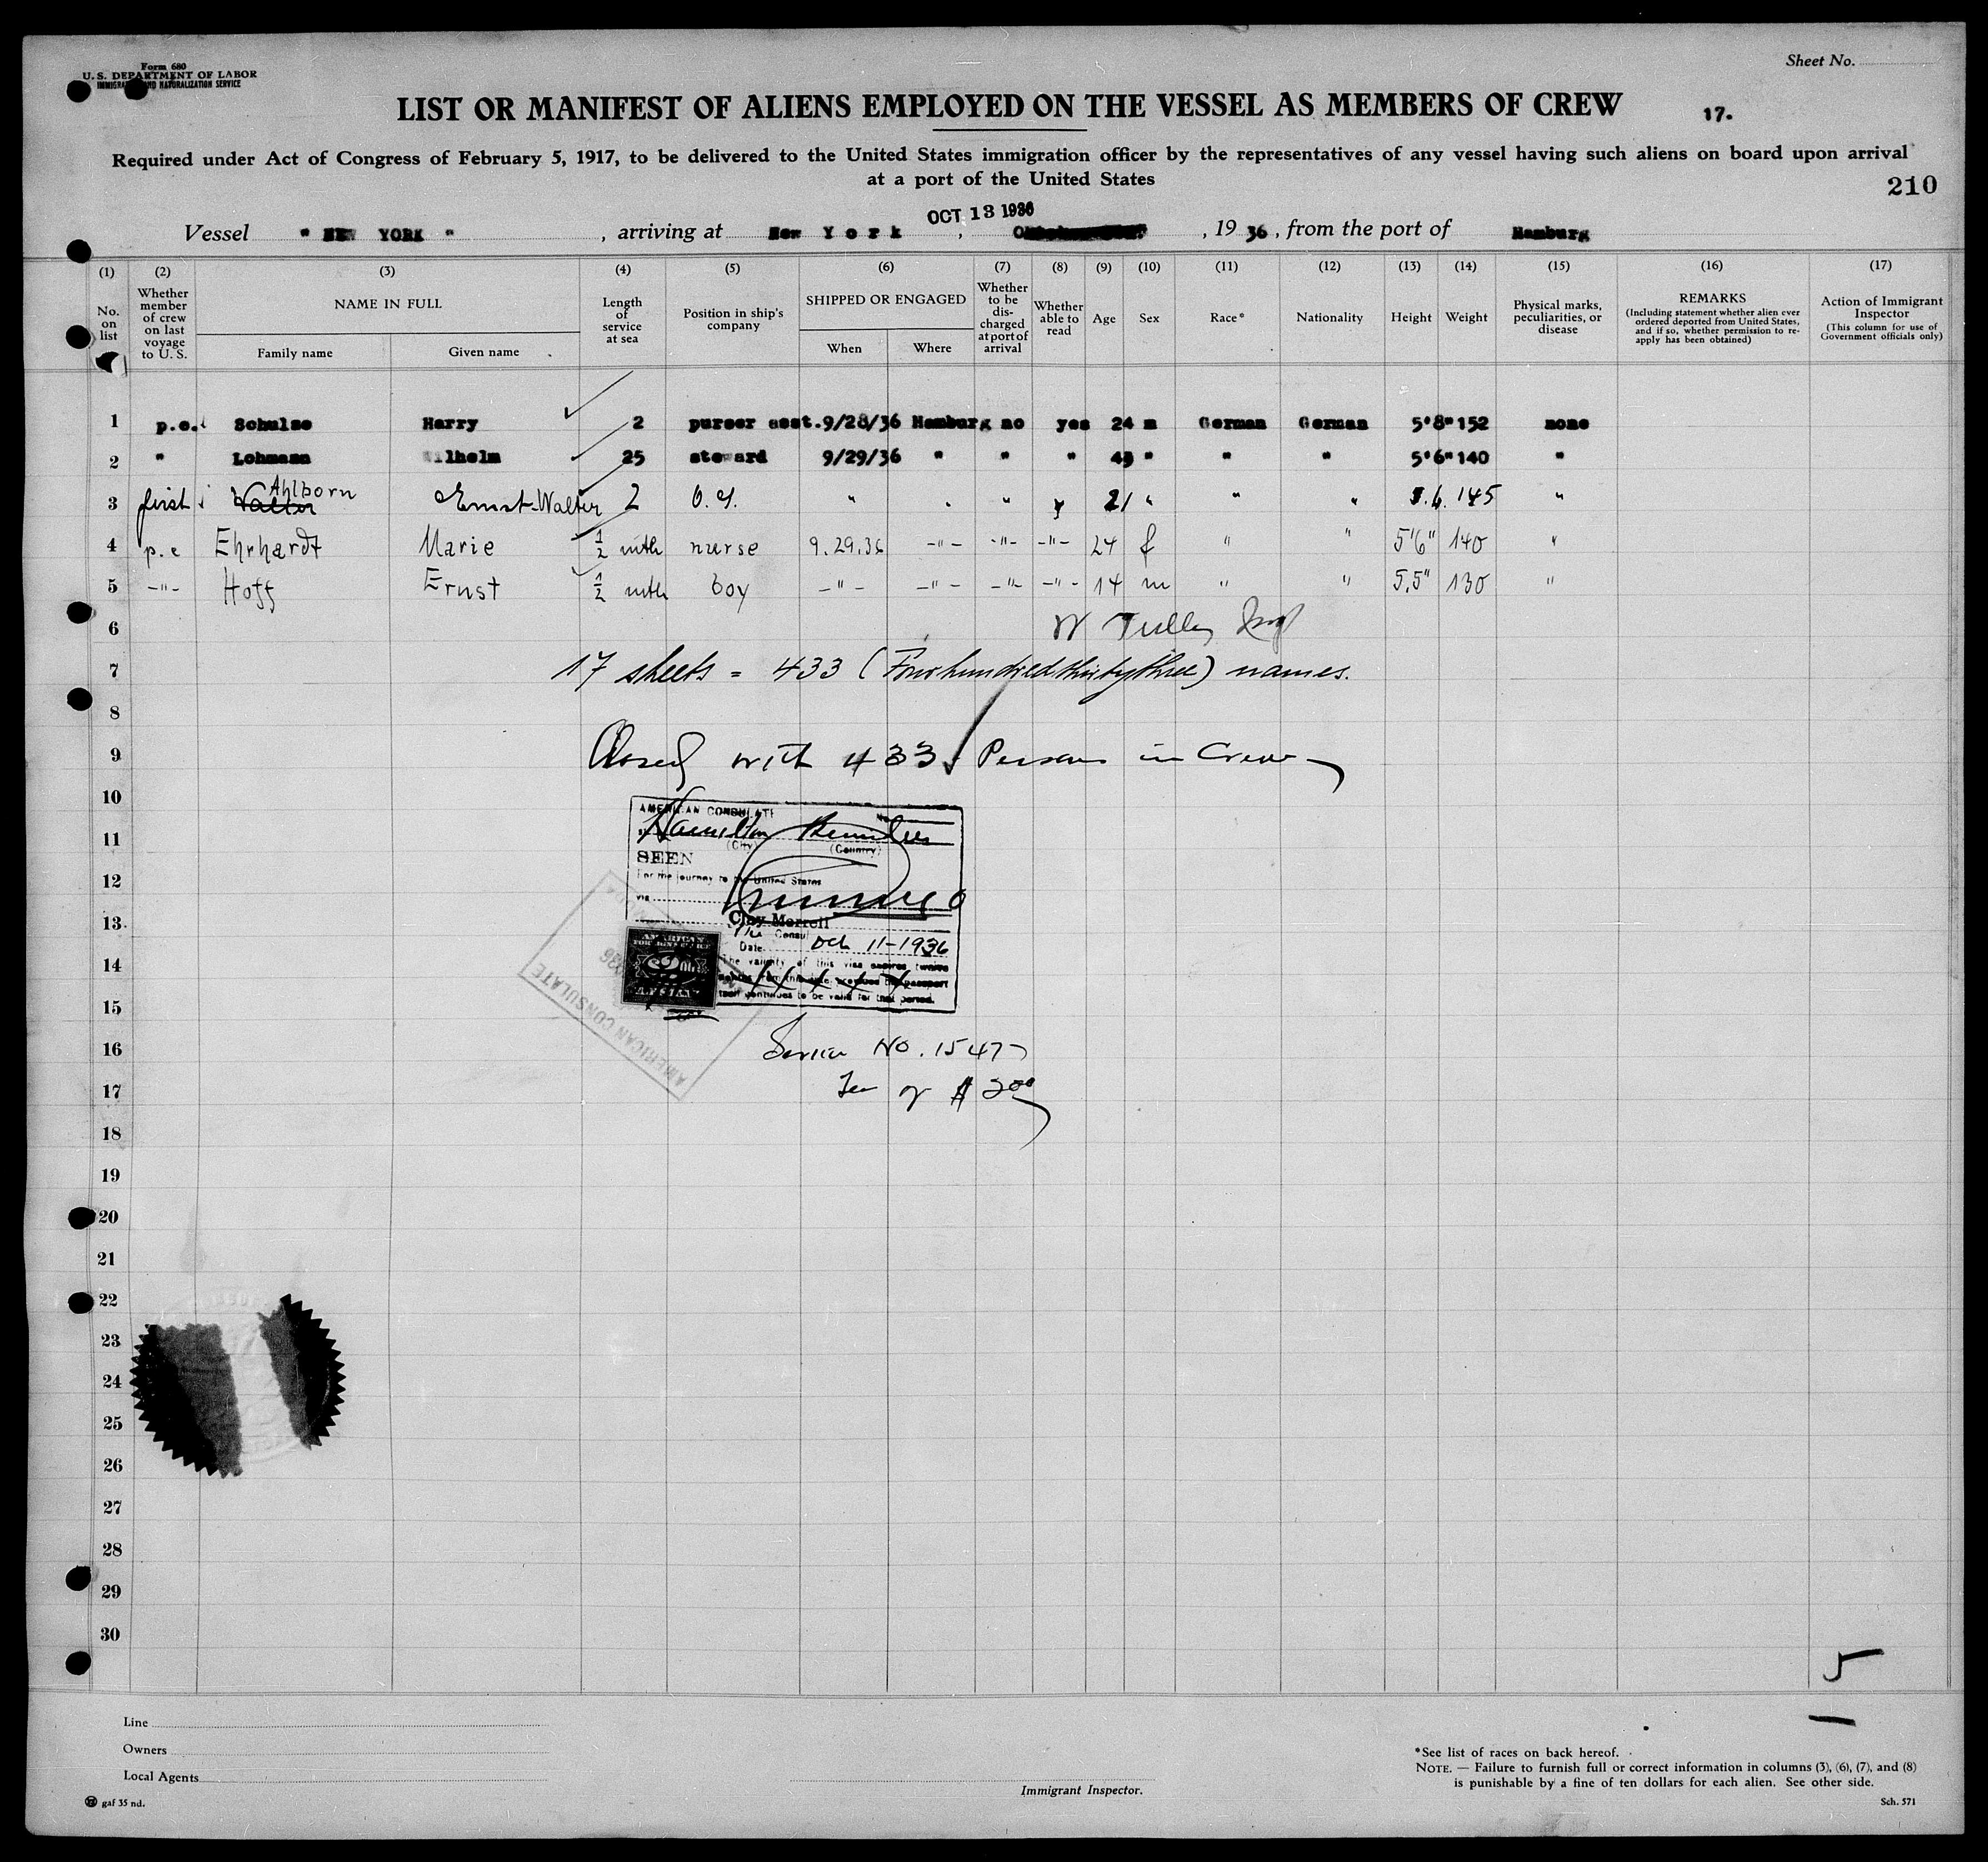 Form 680
U. S. DEPARTMENT OF LABOR
IMMIGRATION AND NATURALIZATION SERVICE
Sheet No.
LIST OR MANIFEST OF ALIENS EMPLOYED ON THE VESSEL AS MEMBERS OF CREW
17.
Required under Act of Congress of February 5, 1917, to be delivered to the United States immigration officer by the representatives of any vessel having such aliens on board upon arrival
at a port of the United States
210
OCT 13 1936
Vessel " NEW YORK " , arriving at New York , , 19 36 , from the port of Hamburg
(1) (2) (3) (4) (5) (6) (7) (8) (9) (10) (11) (12) (13) (14) (15) (16) (17)
No. on list
Whether member of crew on last voyage to U. S.
NAME IN FULL
Family name
Given name
Length of service at sea
Position in ship's company
SHIPPED OR ENGAGED
When
Where
Whether to be discharged at port of arrival
Whether able to read
Age
Sex
Race*
Nationality
Height
Weight
Physical marks, peculiarities, or disease
REMARKS
(Including statement whether alien ever ordered deported from United States, and if so, whether permission to reapply has been obtained)
Action of Immigrant Inspector
(This column for use of Government officials only)
1 p.e. Schulze Harry 2 purser asst. 9/28/36 Hamburg no yes 24 m German German 5'8" 152 none
2 " Lohmann Wilhelm 25 steward 9/29/36 " " " 49 " " " 5'6" 140 "
3 first Walter Ahlborn Ernst-Walter 2 O.S. " " " y 21 " " " 5.6. 145 "
4 p.e Ehrhardt Marie 1/2 mth nurse 9.29.36 -"- -"- -"- 24 f " " 5'6" 140 "
5 -"- Hoff Ernst 1/2 mth boy -"- -"- -"- -"- 14 m " " 5,5" 130 "
6
7 17 sheets = 433 (Fourhundredthirtythree) names.
8
9 Closed with 433 Persons in Crew
10
AMERICAN CONSULATE No.
11 Hamilton Bermuda
(City) (Country)
SEEN
12 For the journey to the United States
via
13 Clay Merrell
Vice Consul
Date Oct 11-1936
14 The validity of this visa expires twelve
months from this date, provided the passport
itself continues to be valid for that period.
AMERICAN FOREIGN SERVICE
AMERICAN CONSULATE
15
16 Service No. 1547
17 Fee of $ 2.00
18
19
20
21
22
23
24
25
26
27
28
29
30
5
Line
Owners
Local Agents
gaf 35 nd.
Immigrant Inspector.
*See list of races on back hereof.
NOTE. — Failure to furnish full or correct information in columns (3), (6), (7), and (8)
is punishable by a fine of ten dollars for each alien. See other side.
Sch. 571